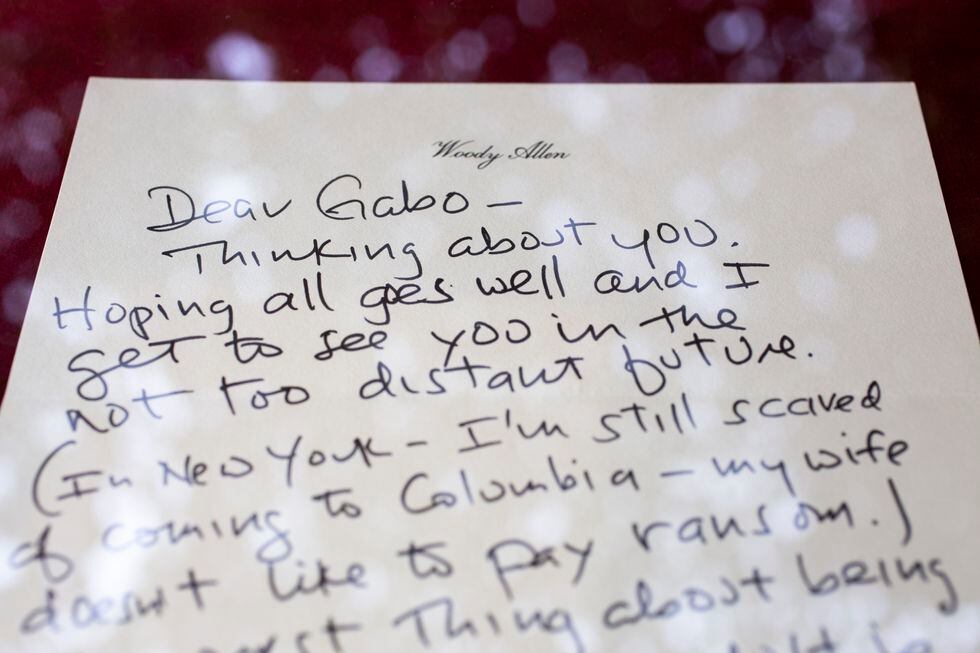 Woody Allen
Dear Gabo –
Thinking about you.
Hoping all goes well and I
get to see you in the
not too distant future.
(In New York – I'm still scared
of coming to Colombia – my wife
doesn't like to pay ransom.)
Thing about being